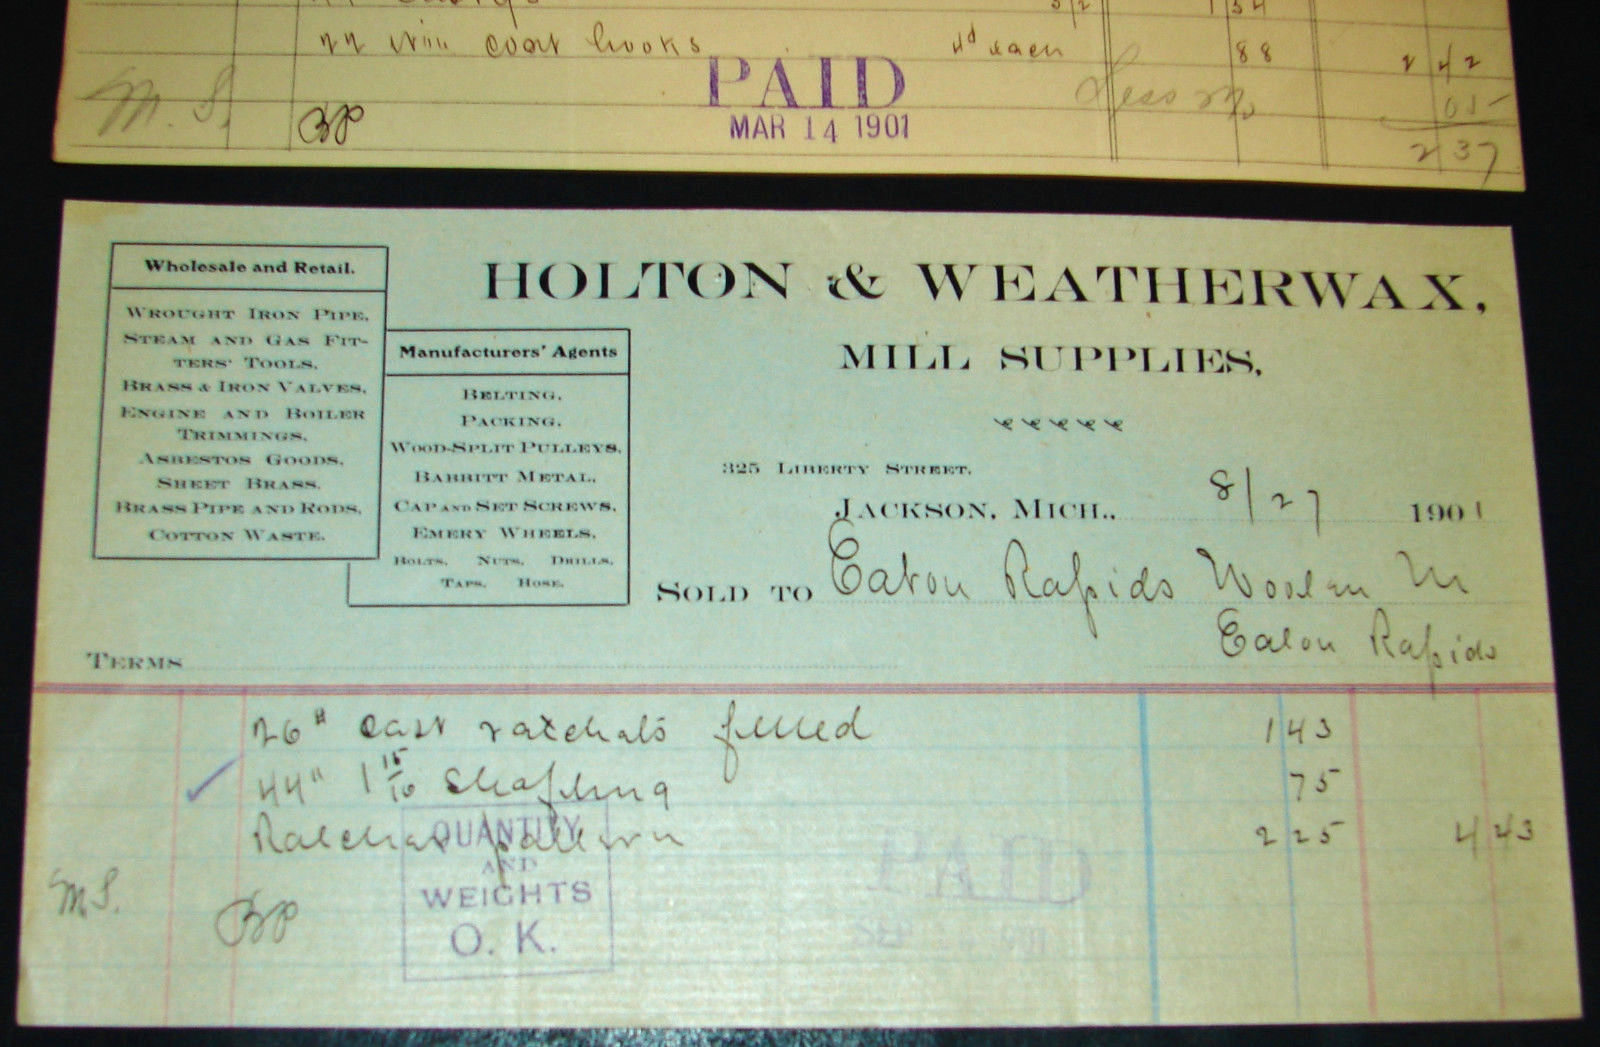 22 wire coat hooks 4d each 88 2 42
Less 2% 05
M. S. BP 2 37
PAID
MAR 14 1901
Wholesale and Retail.
WROUGHT IRON PIPE.
STEAM AND GAS FIT-
TERS' TOOLS.
BRASS & IRON VALVES.
ENGINE AND BOILER
TRIMMINGS.
ASBESTOS GOODS.
SHEET BRASS.
BRASS PIPE AND RODS.
COTTON WASTE.
Manufacturers' Agents
BELTING.
PACKING.
WOOD-SPLIT PULLEYS.
BABBITT METAL.
CAP AND SET SCREWS.
EMERY WHEELS.
BOLTS. NUTS. DRILLS.
TAPS. HOSE.
HOLTON & WEATHERWAX,
MILL SUPPLIES,
325 LIBERTY STREET.
JACKSON, MICH., 8/27 1901
SOLD TO Eaton Rapids Woolen M
Eaton Rapids
TERMS
26" cast ratchets filled 1 43
44" 1 15/16 Shafting 75
Ratchet pattern 2 25 4 43
M.S. BP
QUANTITY
AND
WEIGHTS
O. K.
PAID
SEP